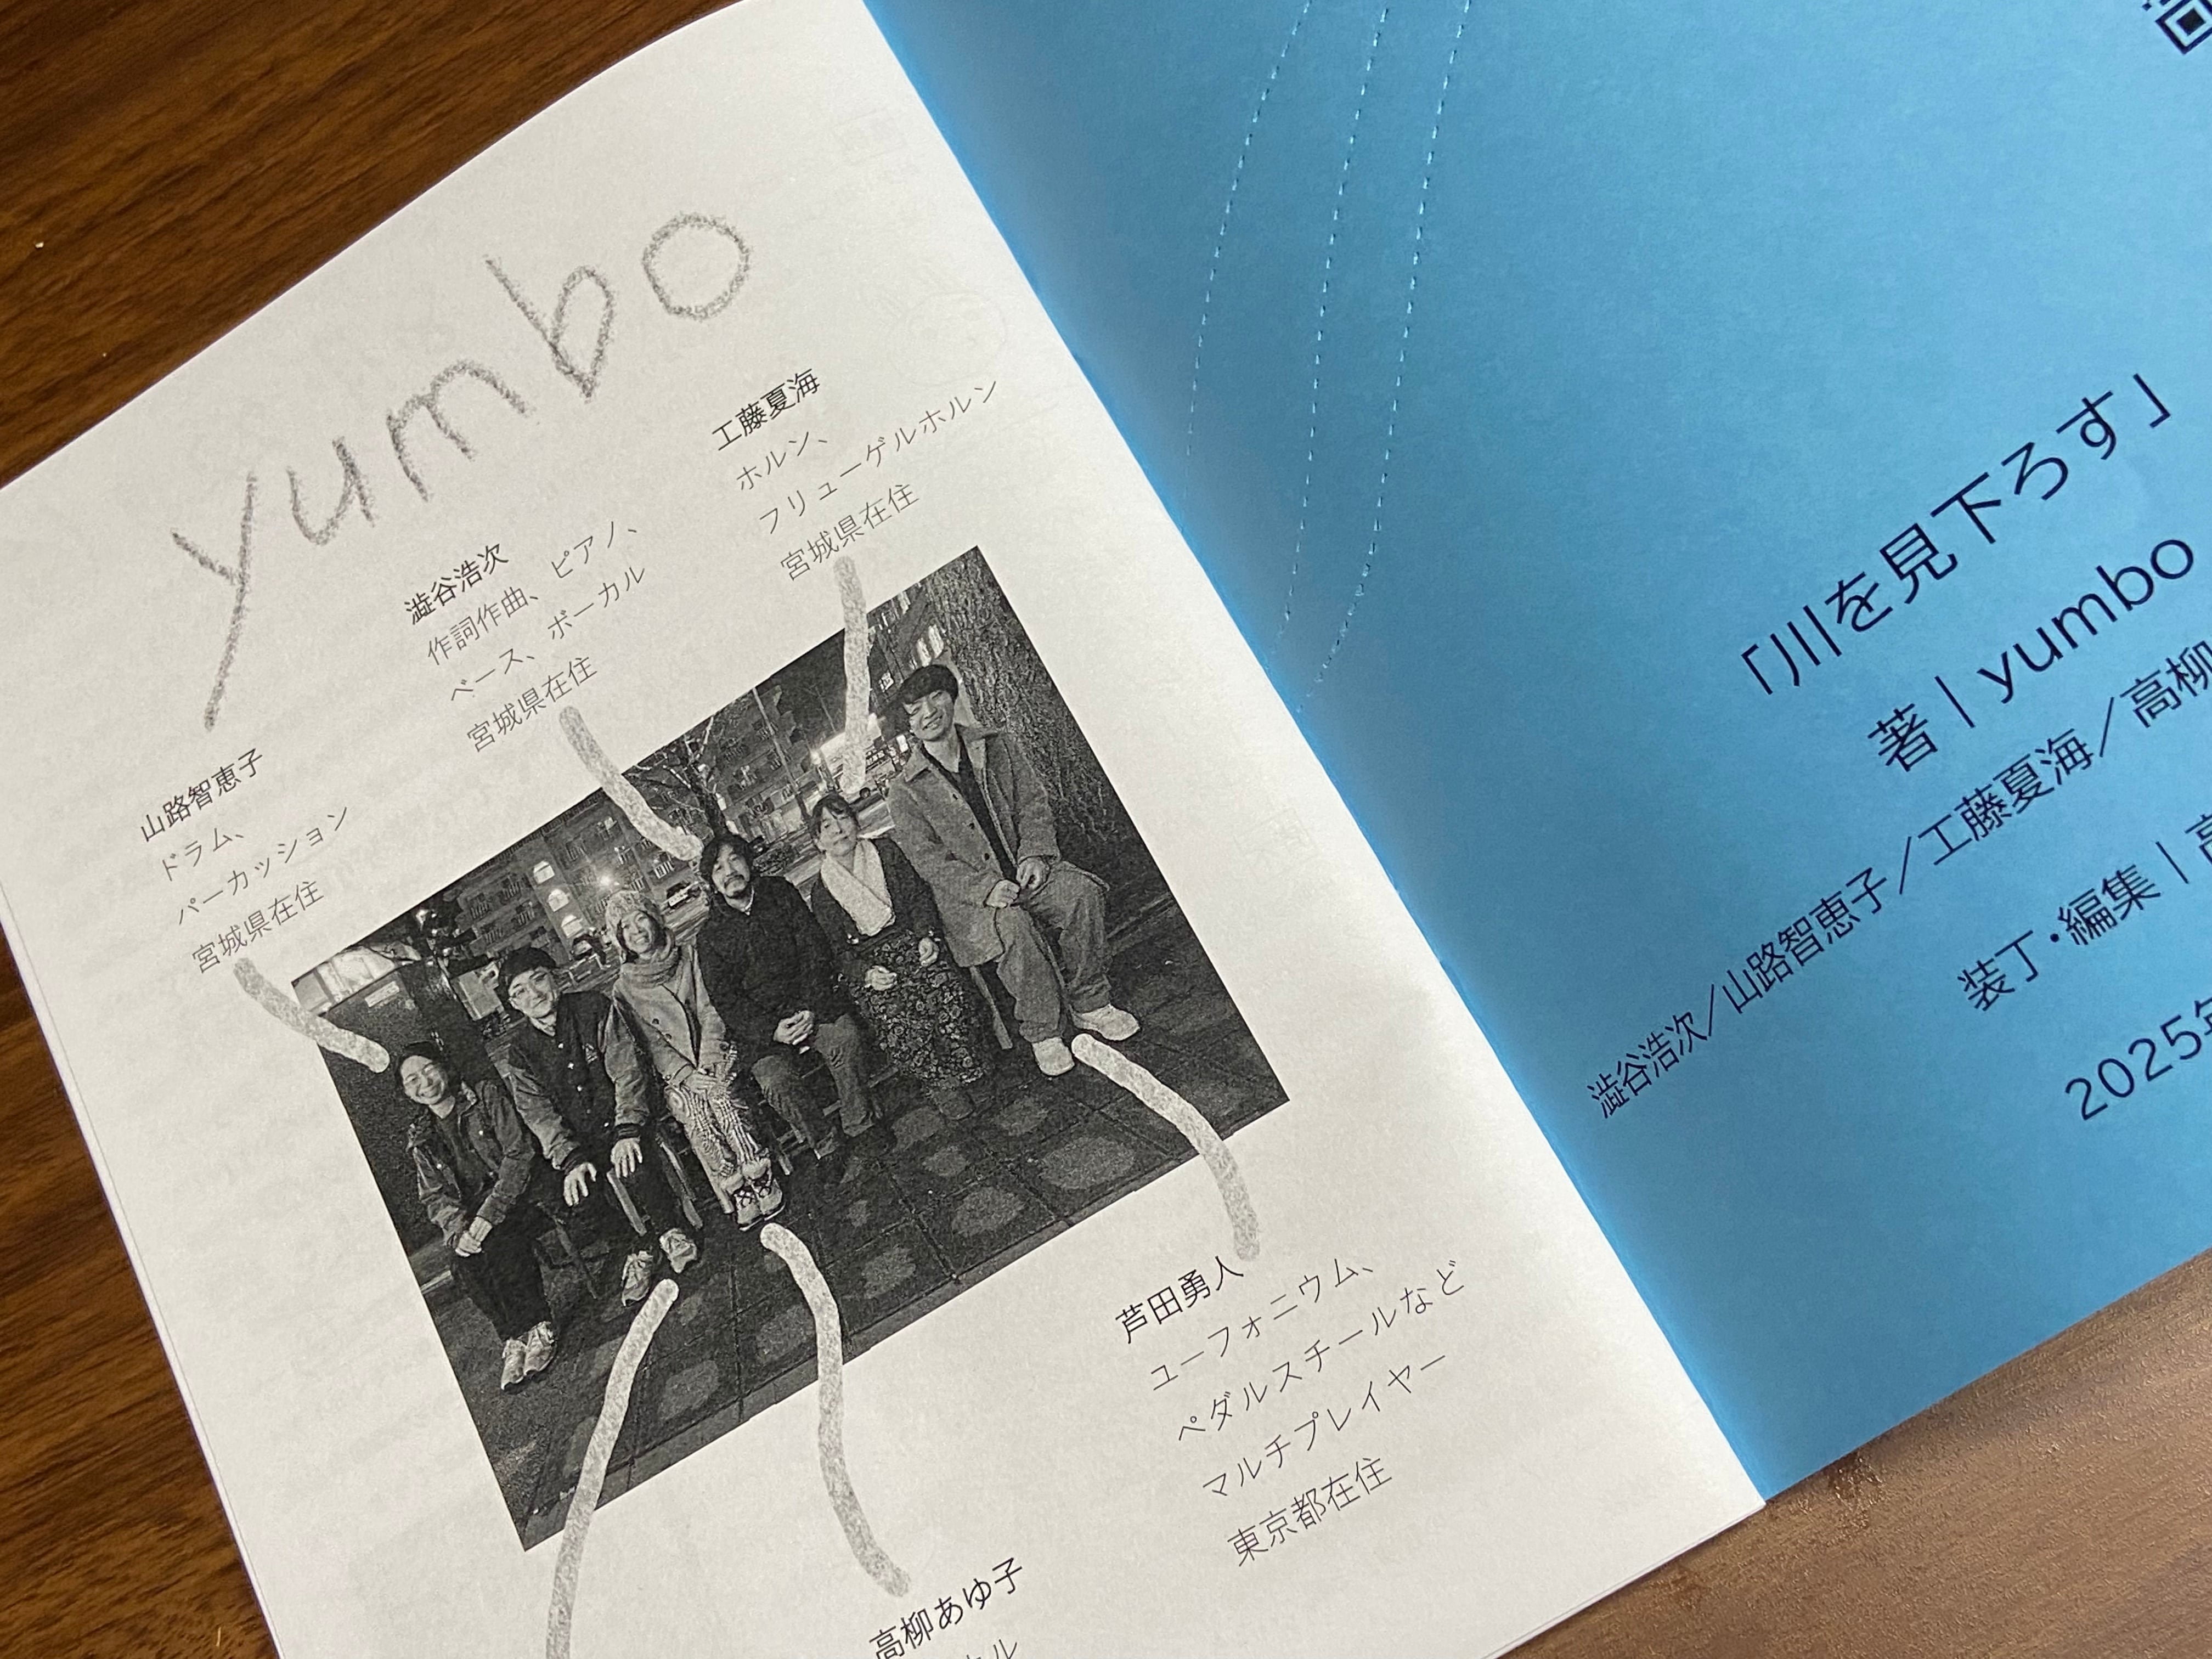 yumbo
工藤夏海
ホルン、
フリューゲルホルン
宮城県在住
澁谷浩次
作詞作曲、ピアノ、
ベース、ボーカル
宮城県在住
山路智恵子
ドラム、
パーカッション
宮城県在住
芦田勇人
ユーフォニウム、
ペダルスチールなど
マルチプレイヤー
東京都在住
高柳あゆ子
「川を見下ろす」
著｜yumbo
澁谷浩次／山路智恵子／工藤夏海／高柳
装丁・編集｜
2025年